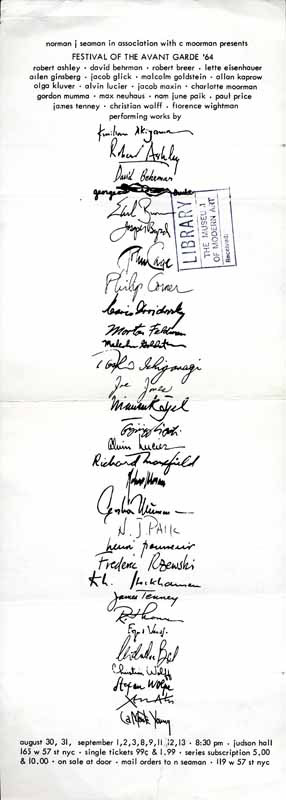 norman j seaman in association with c moorman presents
FESTIVAL OF THE AVANT GARDE '64
robert ashley · david behrman · robert breer · lette eisenhauer
allen ginsberg · jacob glick · malcolm goldstein · allan kaprow
olga kluver · alvin lucier · jacob maxin · charlotte moorman
gordon mumma · max neuhaus · nam june paik · paul price
james tenney · christian wolff · florence wightman
performing works by
Robert Ashley
David Behrman
george
Earl Brown
John Cage
Philip Corner
Mario Davidovsky
Morton Feldman
Malcolm Goldstein
Toshi Ichiyanagi
Joe Jones
Mauricio Kagel
György Ligeti
Alvin Lucier
Richard Maxfield
Gordon Mumma
N. J Paik
henri pousseur
Frederic Rzewski
Kh. Stockhausen
James Tenney
Christian Wolff
Stefan Wolpe
La Monte Young
LIBRARY
THE MUSEUM
OF MODERN ART
Received:
august 30, 31, september 1,2,3,8,9,11,12,13 · 8:30 pm · judson hall
165 w 57 st nyc · single tickets 99¢ & 1.99 · series subscription 5.00
& 10.00 · on sale at door · mail orders to n seaman · 119 w 57 st nyc